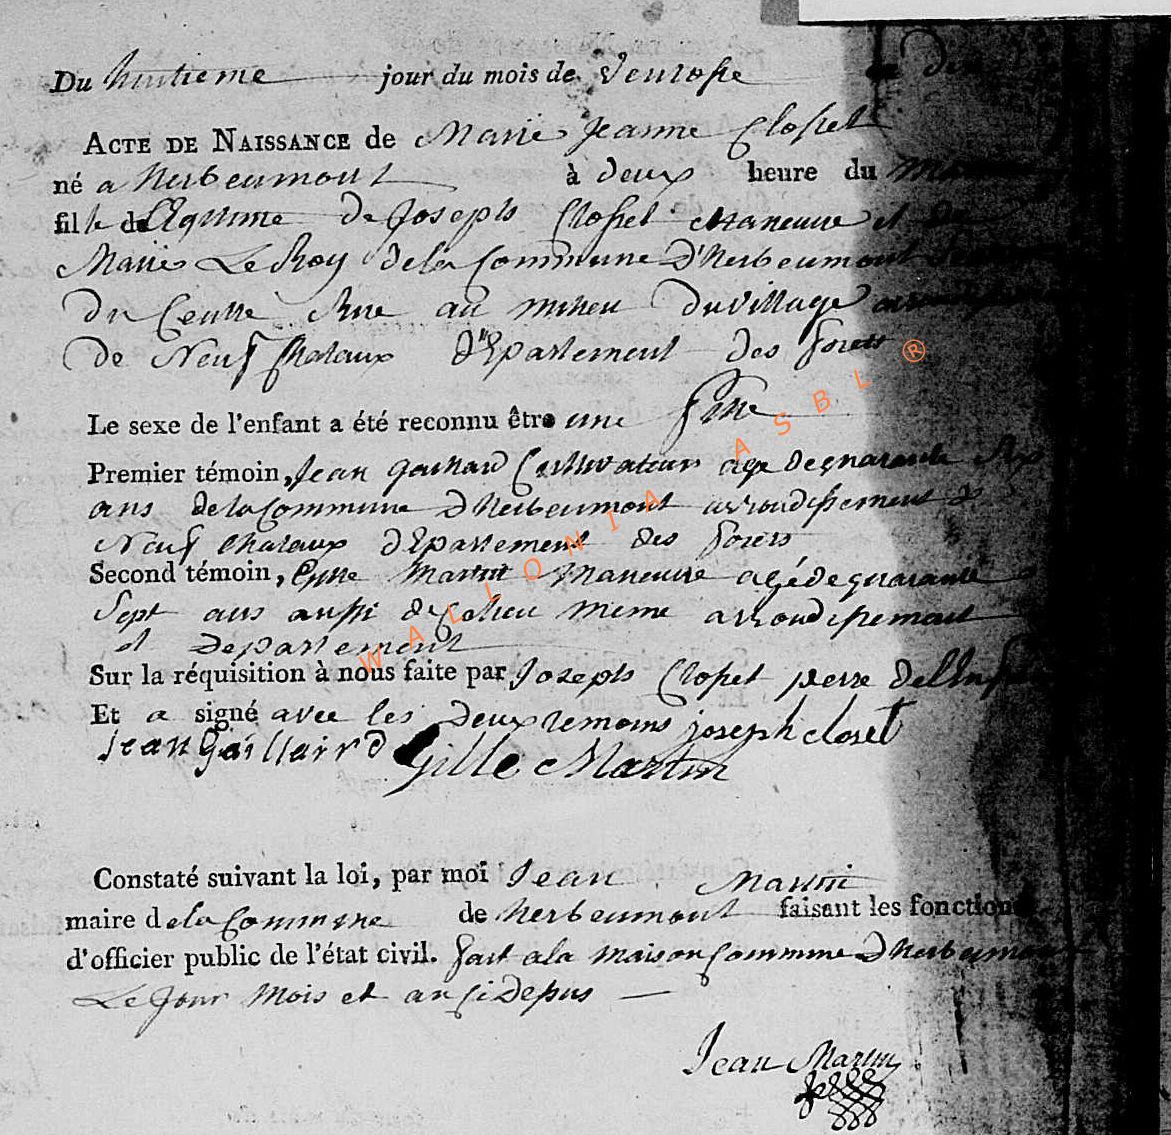 Du huitieme jour du mois de Ventose
ACTE DE NAISSANCE de Marie Jeanne Closset
né a Herbeumont à deux heure du
fille de legitime de Joseph Closset Maneuve et de
Marie Le Roy de la Commune d'Herbeumont
du Centre Rue au milieu du village
de Neuf Chataux d'Epartement des forets
Le sexe de l'enfant a été reconnu être une fille
Premier témoin, Jean gaillard Cultivateur age de quarante
ans de la Commune d'Herbeumont arrondissement de
Neuf Chataux dEpartement des forets
Second témoin, Gille Martin Maneuve agé de quarante
Sept ans aussi de Ce lieu meme arrondissement
et Departement
Sur la réquisition à nous faite par Joseph Closset perre de l'
Et a signé avec les deux temoins joseph closet
jean Gaillard Gille Martin
Constaté suivant la loi, par moi Jean Martin
maire de la Commune de Herbeumont faisant les fonctions
d'officier public de l'état civil. fait a la maison Commune d'Herbeumont
Le Jour Mois et an Ci Depus
Jean Martin
WALLONIA ASBL ®